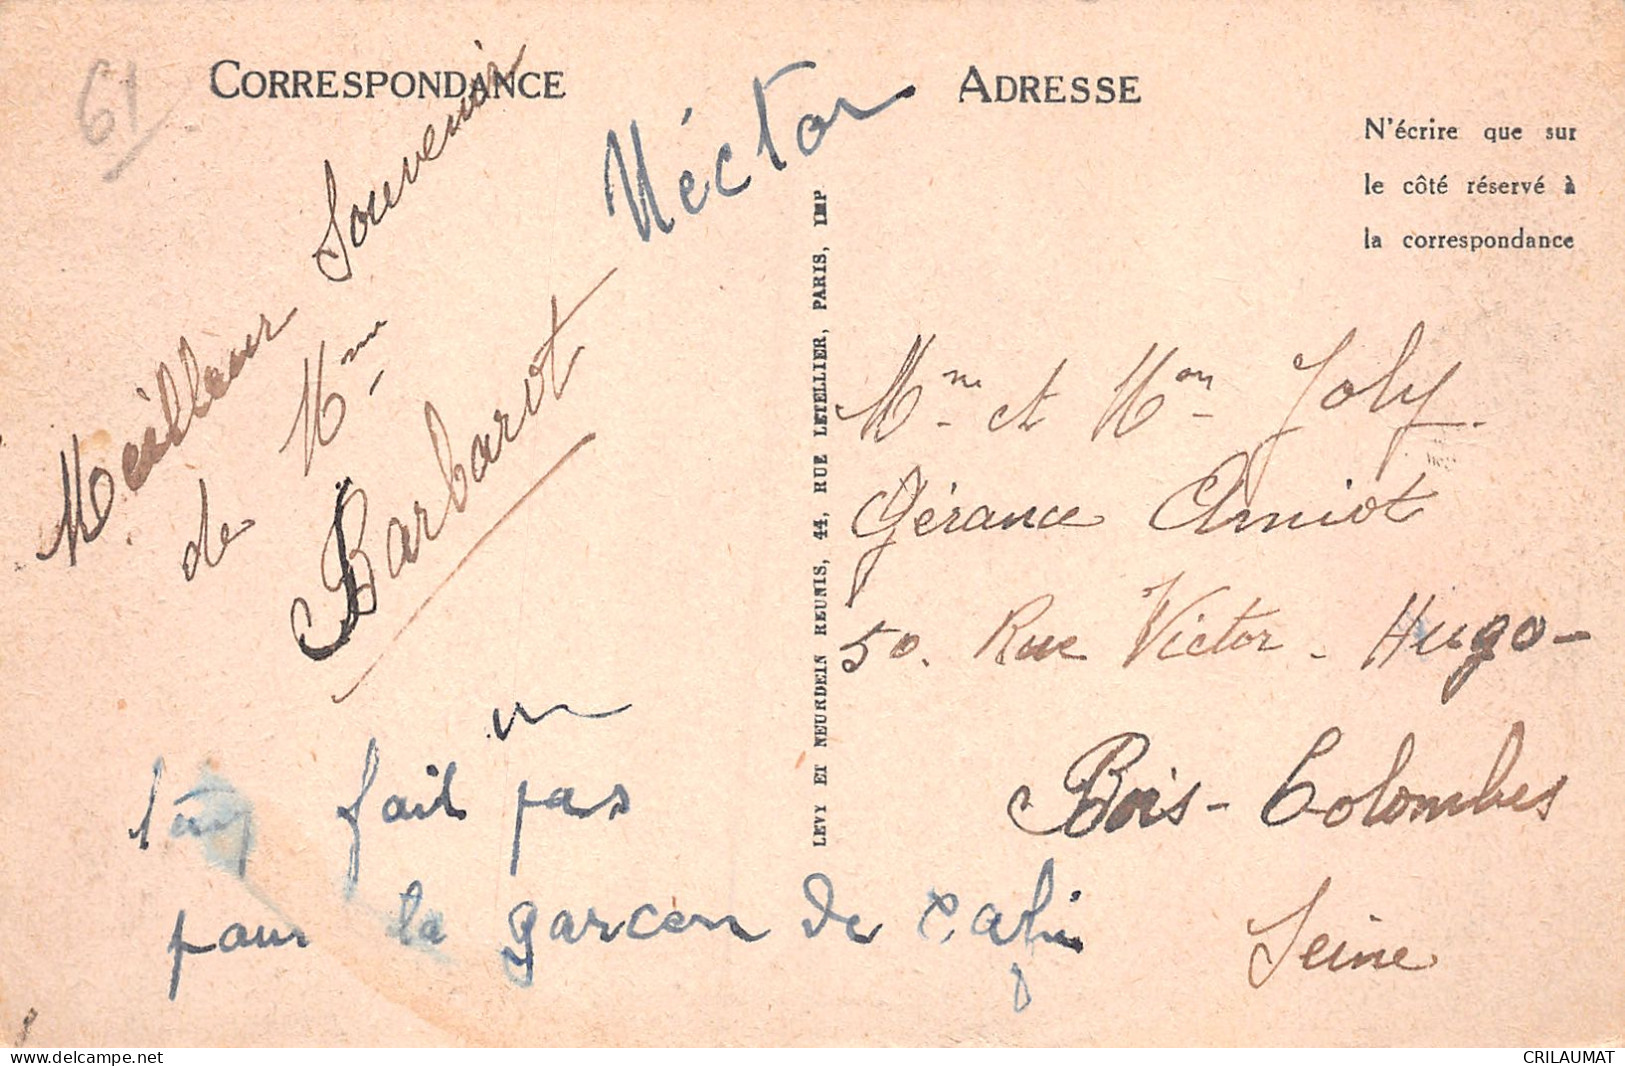 61
CORRESPONDANCE
Meilleur Souvenir
de Mme
Barbarot
Héctor
un
fait pas
pour la garcon de
LEVY ET NEURDEIN REUNIS, 44, RUE LETELLIER, PARIS, IMP
ADRESSE
N'écrire que sur
le côté réservé à
la correspondance
Mme et Mon Joly.
Gérance Amiot
50. Rue Victor-Hugo-
Bois-Colombes
Seine
CRILAUMAT